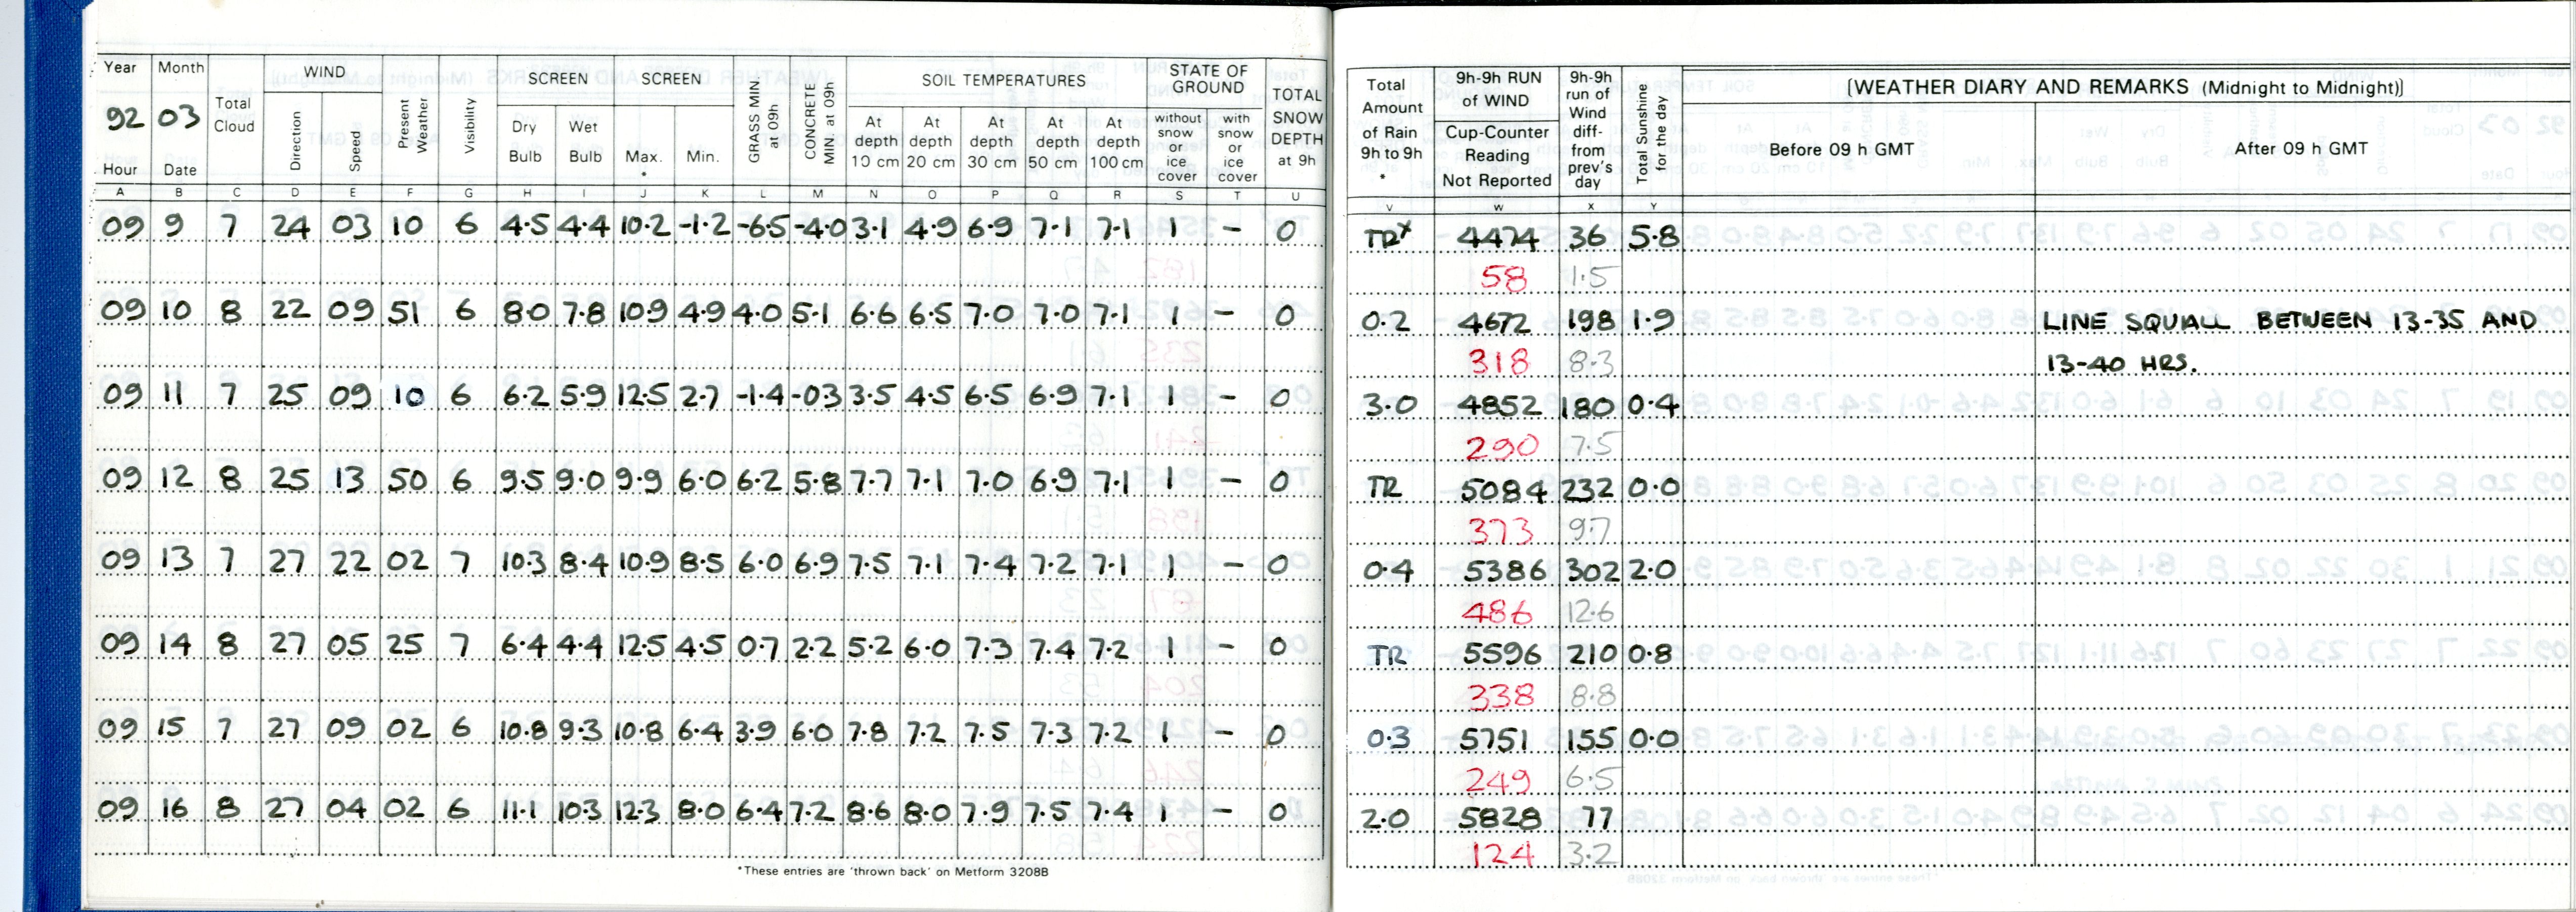 Year Month Total Cloud WIND Present Weather Visibility SCREEN SCREEN GRASS MIN at 09h CONCRETE MIN at 09h SOIL TEMPERATURES STATE OF GROUND TOTAL SNOW DEPTH at 9h
92 03 Direction Speed Dry Bulb Wet Bulb Max. * Min. At depth 10 cm At depth 20 cm At depth 30 cm At depth 50 cm At depth 100 cm without snow or ice cover with snow or ice cover
Hour Date
A B C D E F G H I J K L M N O P Q R S T U
09 9 7 24 03 10 6 4.5 4.4 10.2 -1.2 -6.5 -4.0 3.1 4.9 6.9 7.1 7.1 1 – 0
09 10 8 22 09 51 6 8.0 7.8 10.9 4.9 4.0 5.1 6.6 6.5 7.0 7.0 7.1 1 – 0
09 11 7 25 09 10 6 6.2 5.9 12.5 2.7 -1.4 -03 3.5 4.5 6.5 6.9 7.1 1 – 0
09 12 8 25 13 50 6 9.5 9.0 9.9 6.0 6.2 5.8 7.7 7.1 7.0 6.9 7.1 1 – 0
09 13 7 27 22 02 7 10.3 8.4 10.9 8.5 6.0 6.9 7.5 7.1 7.4 7.2 7.1 1 – 0
09 14 8 27 05 25 7 6.4 4.4 12.5 4.5 0.7 2.2 5.2 6.0 7.3 7.4 7.2 1 – 0
09 15 7 27 09 02 6 10.8 9.3 10.8 6.4 3.9 6.0 7.8 7.2 7.5 7.3 7.2 1 – 0
09 16 8 27 04 02 6 11.1 10.3 12.3 8.0 6.4 7.2 8.6 8.0 7.9 7.5 7.4 1 – 0
*These entries are 'thrown back' on Metform 3208B
Total Amount of Rain 9h to 9h * 9h-9h RUN of WIND Cup-Counter Reading Not Reported 9h-9h run of Wind diff- from prev's day Total Sunshine for the day [WEATHER DIARY AND REMARKS (Midnight to Midnight)]
Before 09 h GMT After 09 h GMT
V W X Y
TR* 4474 36 5.8
58 1.5
0.2 4672 198 1.9 LINE SQUALL BETWEEN 13-35 AND
318 8.3 13-40 HRS.
3.0 4852 180 0.4
290 7.5
TR 5084 232 0.0
373 9.7
0.4 5386 302 2.0
486 12.6
TR 5596 210 0.8
338 8.8
0.3 5751 155 0.0
249 6.5
2.0 5828 77
124 3.2